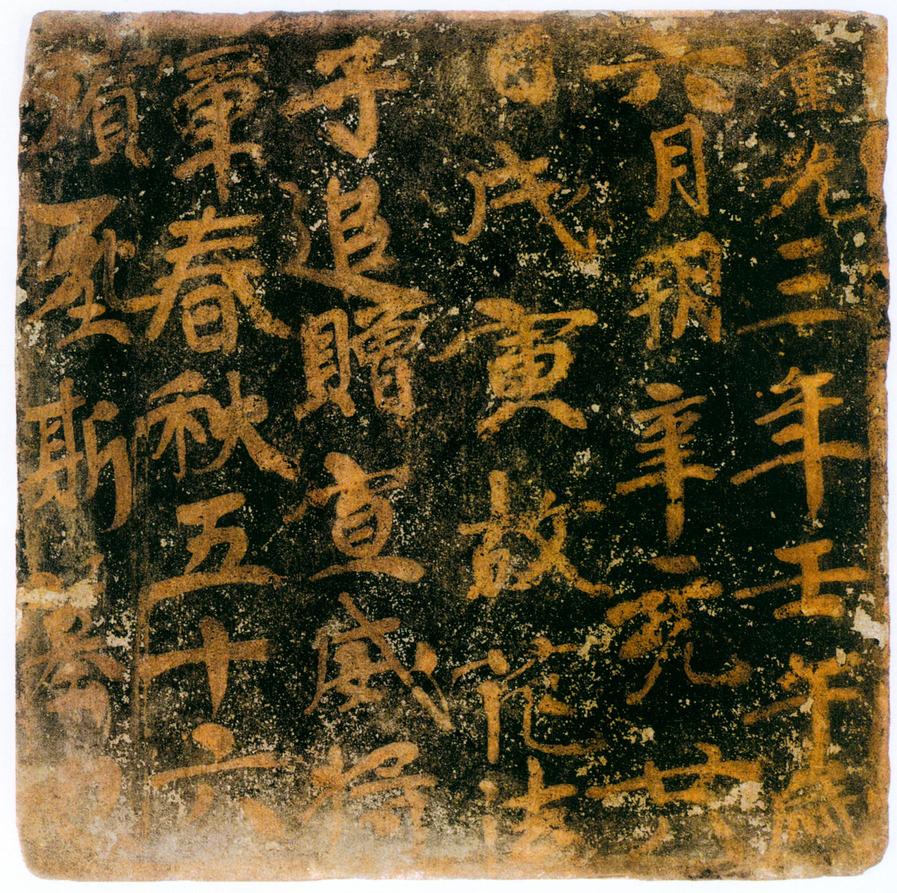 重光三年壬午歲
六月朔辛亥廿
日戊寅故氾法
子追贈宣威將
軍春秋五十六
殞斯